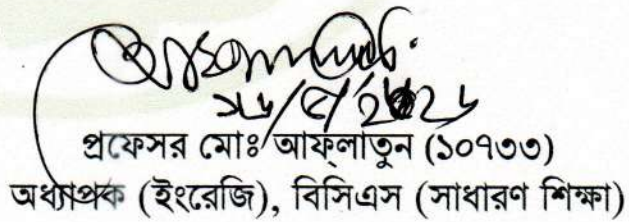 প্রফেসর মোঃ আফ্লাতুন (১০৭৩৩)
অধ্যাপক (ইংরেজি), বিসিএস (সাধারণ শিক্ষা)